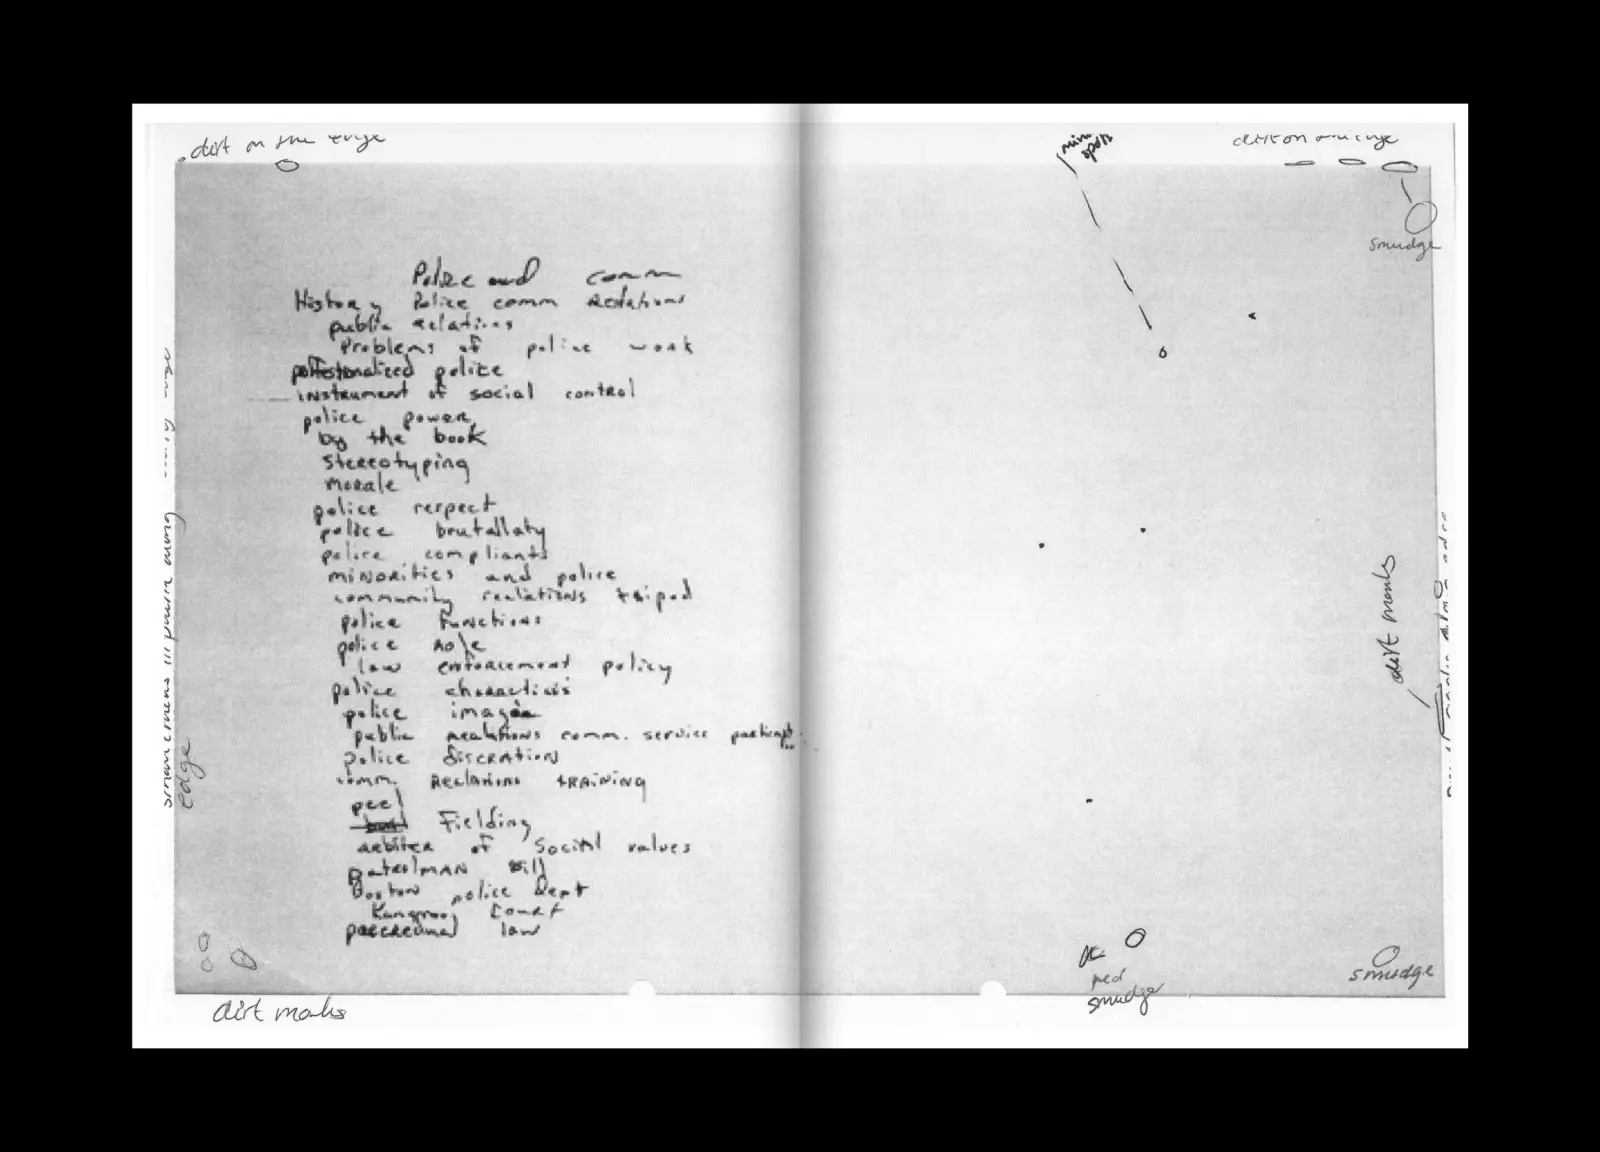 dirt on the edge
Police and comm
History Police comm Relations
public relations
Problems of police work
police
instrument of social control
police power
by the book
stereotyping
morale
police respect
police brutallaty
police compliants
minorities and police
community realations tripod
police functions
police role
law enforcement policy
police
police image
public realations comm. service
police discration
comm. Relations TRAINING
peel
Fielding
arbiter of Social values
patrolman
Boston police Dept
Kangroo Court
law
dirt marks
edge
mini
spots
dirt on edge
smudge
dirt marks
red
smudge
smudge